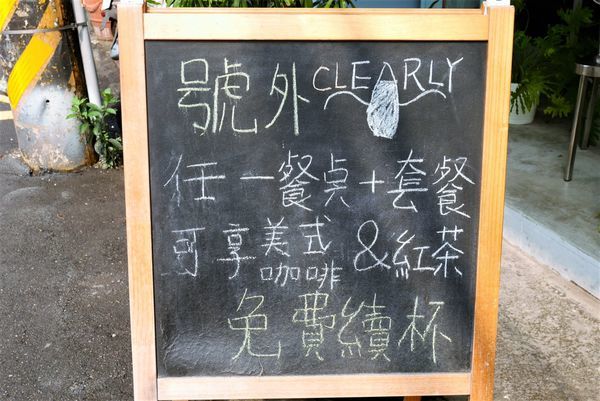 號外 CLEARLY
任一餐点+套餐
可享美式咖啡&紅茶
免費續杯